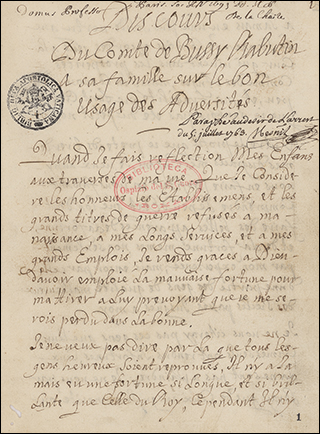 Domus Professæ Paris. Soc. Jesu
Discours
De la Chaise
Du Comte de Bussy Rabutin
a sa famille sur le bon
Usage des Adversités
Paraphé au desir de l'arrest
du 5 juillet 1763. Mesnil
BIBLIOTECA APOSTOLICA VATICANA
Quand Je fais reflection Mes Enfans
aux traverses de ma vie, que Je Considere
BIBLIOTECA
les honneurs, les Etablissemens, et les
grands titres de guerre refusés a ma
naissance, a mes Longs Services, et a mes
grands Emplois, Je rends graces a Dieu
davoir emploié La mauvaise fortune pour
m'attirer a Luy prevoyant que ie me se-
rois perdu dans La bonne.
Je ne veux pas dire par La que tous les
gens heureux Soient reprouvés, Il ny a Ja
mais eu une fortune si Longue, et si bril-
Lante que Celle du Roy, Cependant Il ny
1